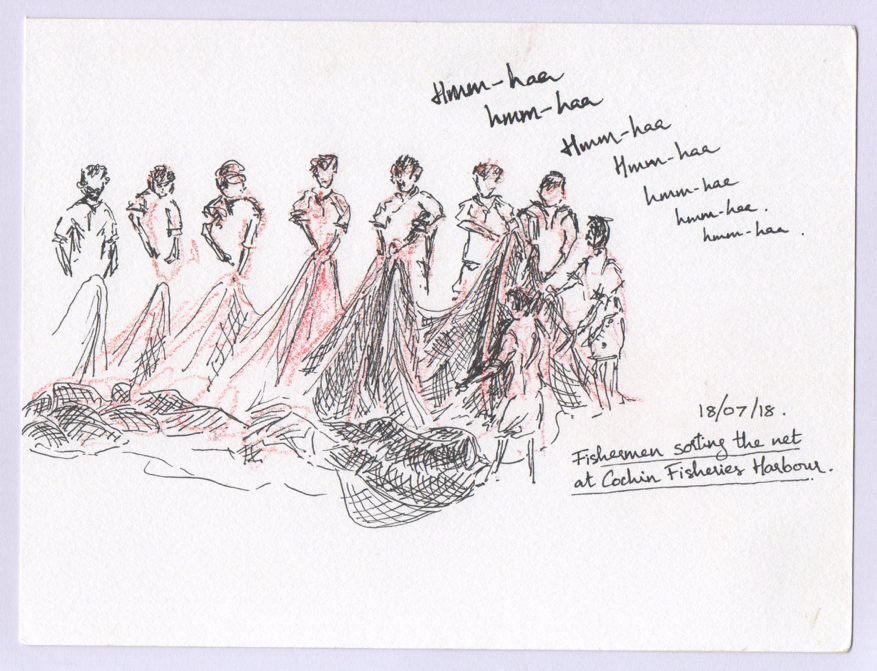 Hmm-haa
hmm-haa
Hmm-haa
Hmm-haa
hmm-haa
hmm-haa.
hmm-haa.
18/07/18.
Fishermen sorting the net
at Cochin Fisheries Harbour.